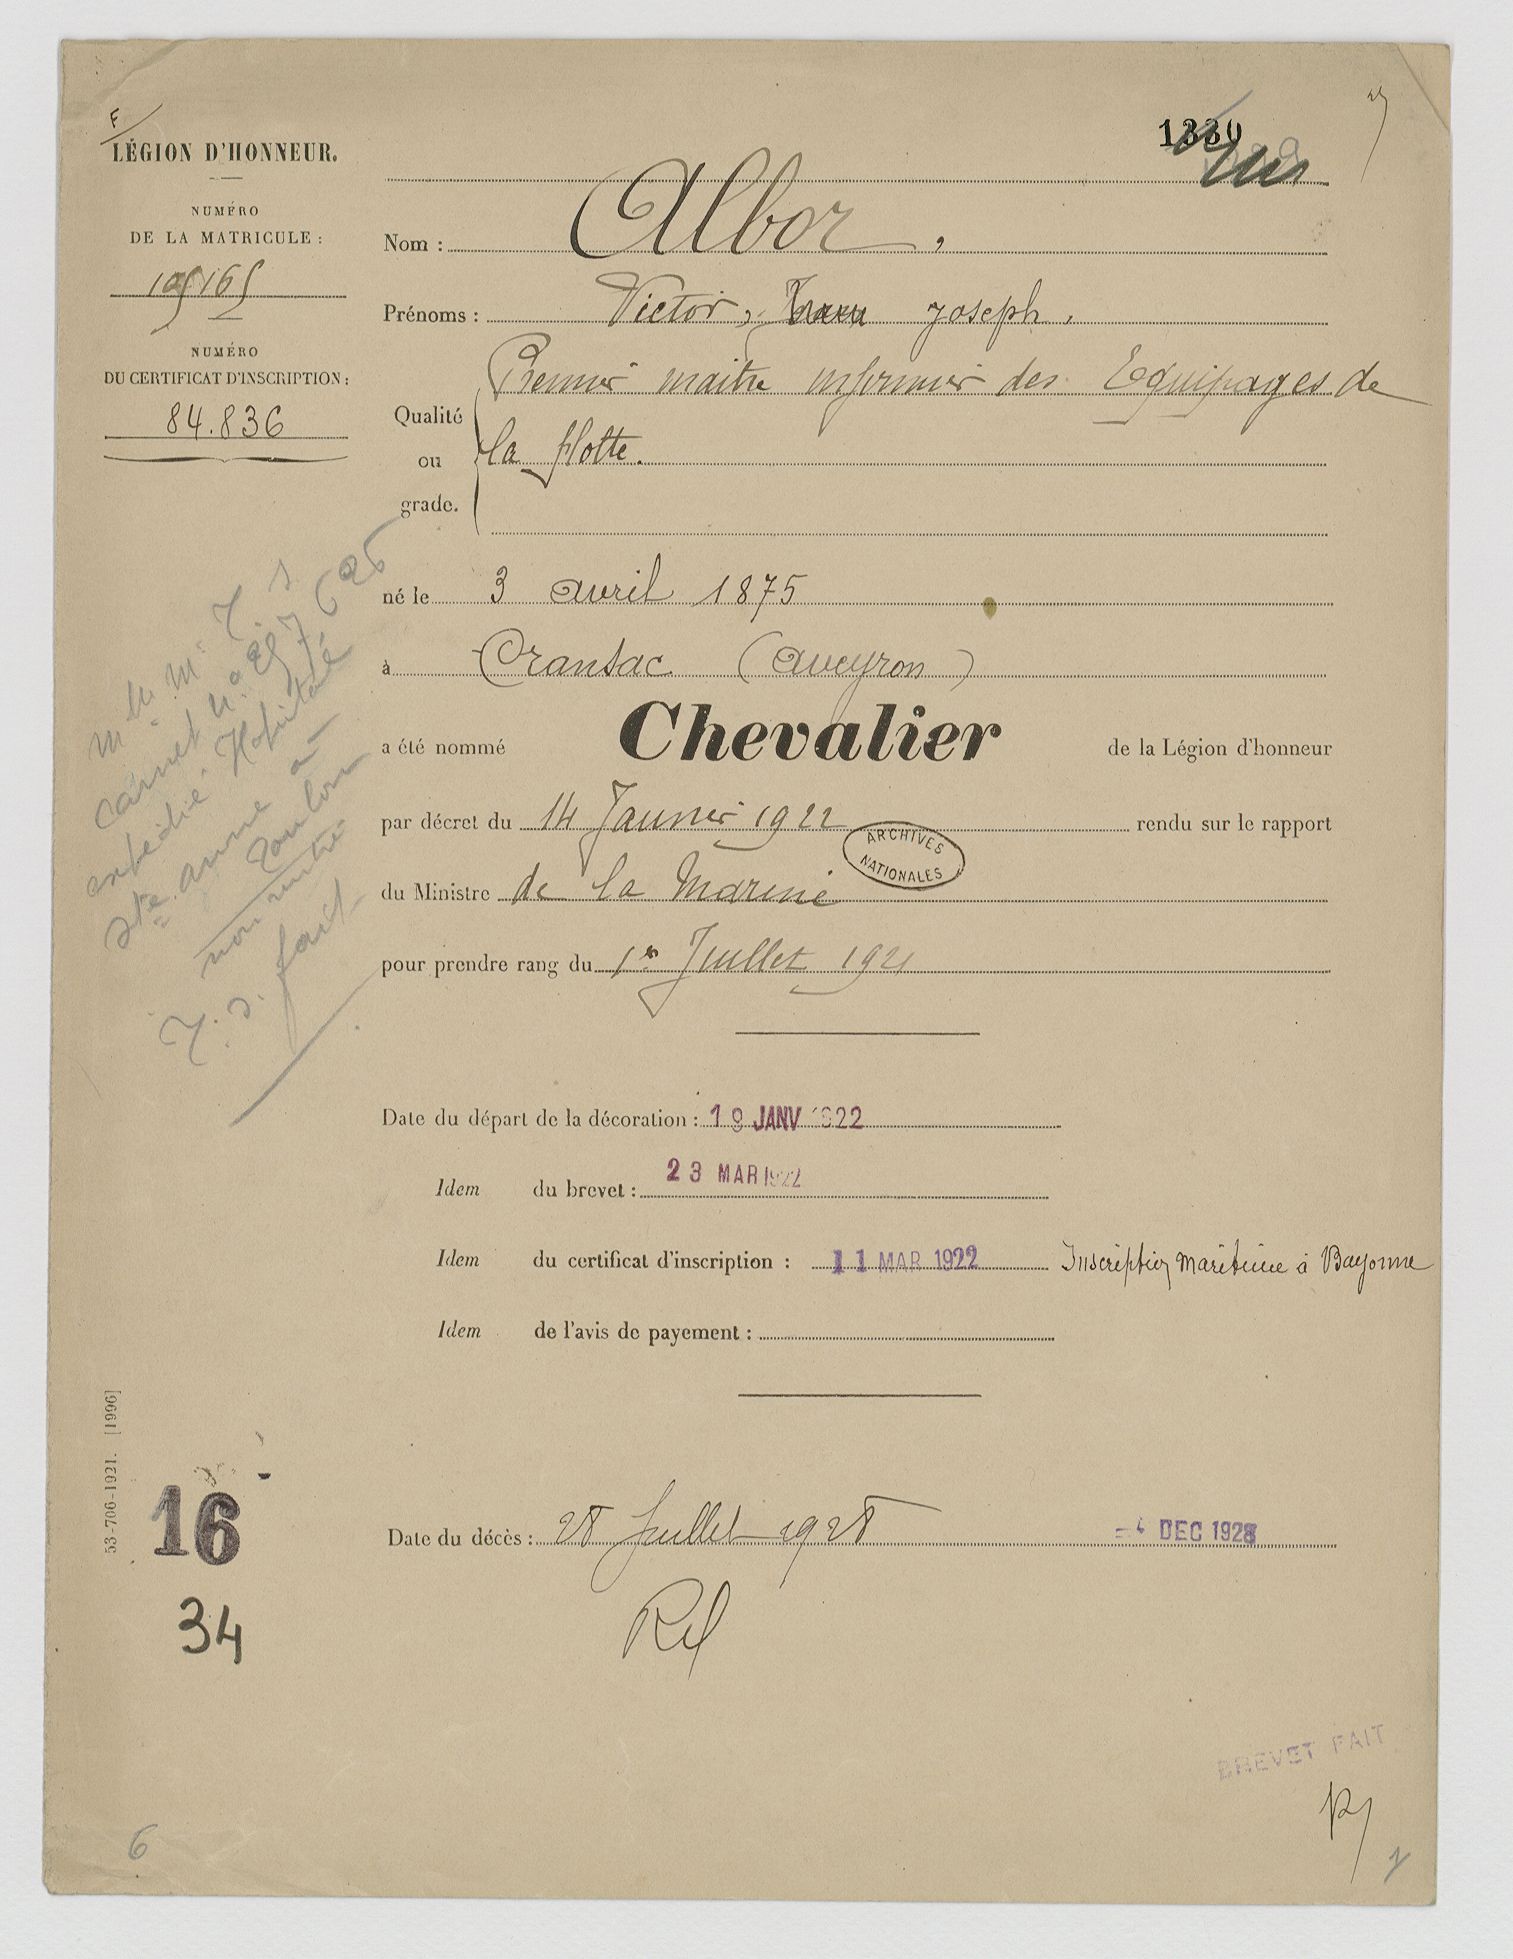 F
LÉGION D'HONNEUR.
NUMÉRO
DE LA MATRICULE :
NUMÉRO
DU CERTIFICAT D'INSCRIPTION :
84.836
1330
Nom : Albor,
Prénoms : Victor, Joseph,
Qualité ou grade. Premier maître infirmier des Equipages de
la flotte.
né le 3 avril 1875
à Cransac (Aveyron)
a été nommé Chevalier de la Légion d'honneur
par décret du 14 Janvier 1922 rendu sur le rapport
ARCHIVES NATIONALES
du Ministre de la Marine
pour prendre rang du 1er Juillet 1921
carnet n°
expédié Hôpital
Ste anne à
Toulon
fait
Date du départ de la décoration : 19 JANV 1922
Idem du brevet : 23 MAR 1922
Idem du certificat d'inscription : 11 MAR 1922 Inscription Maritime à Bayonne
Idem de l'avis de payement :
53-706-1921. [1996]
16
34
Date du décès : 28 Juillet 1928 -4 DEC 1928
BREVET FAIT
6